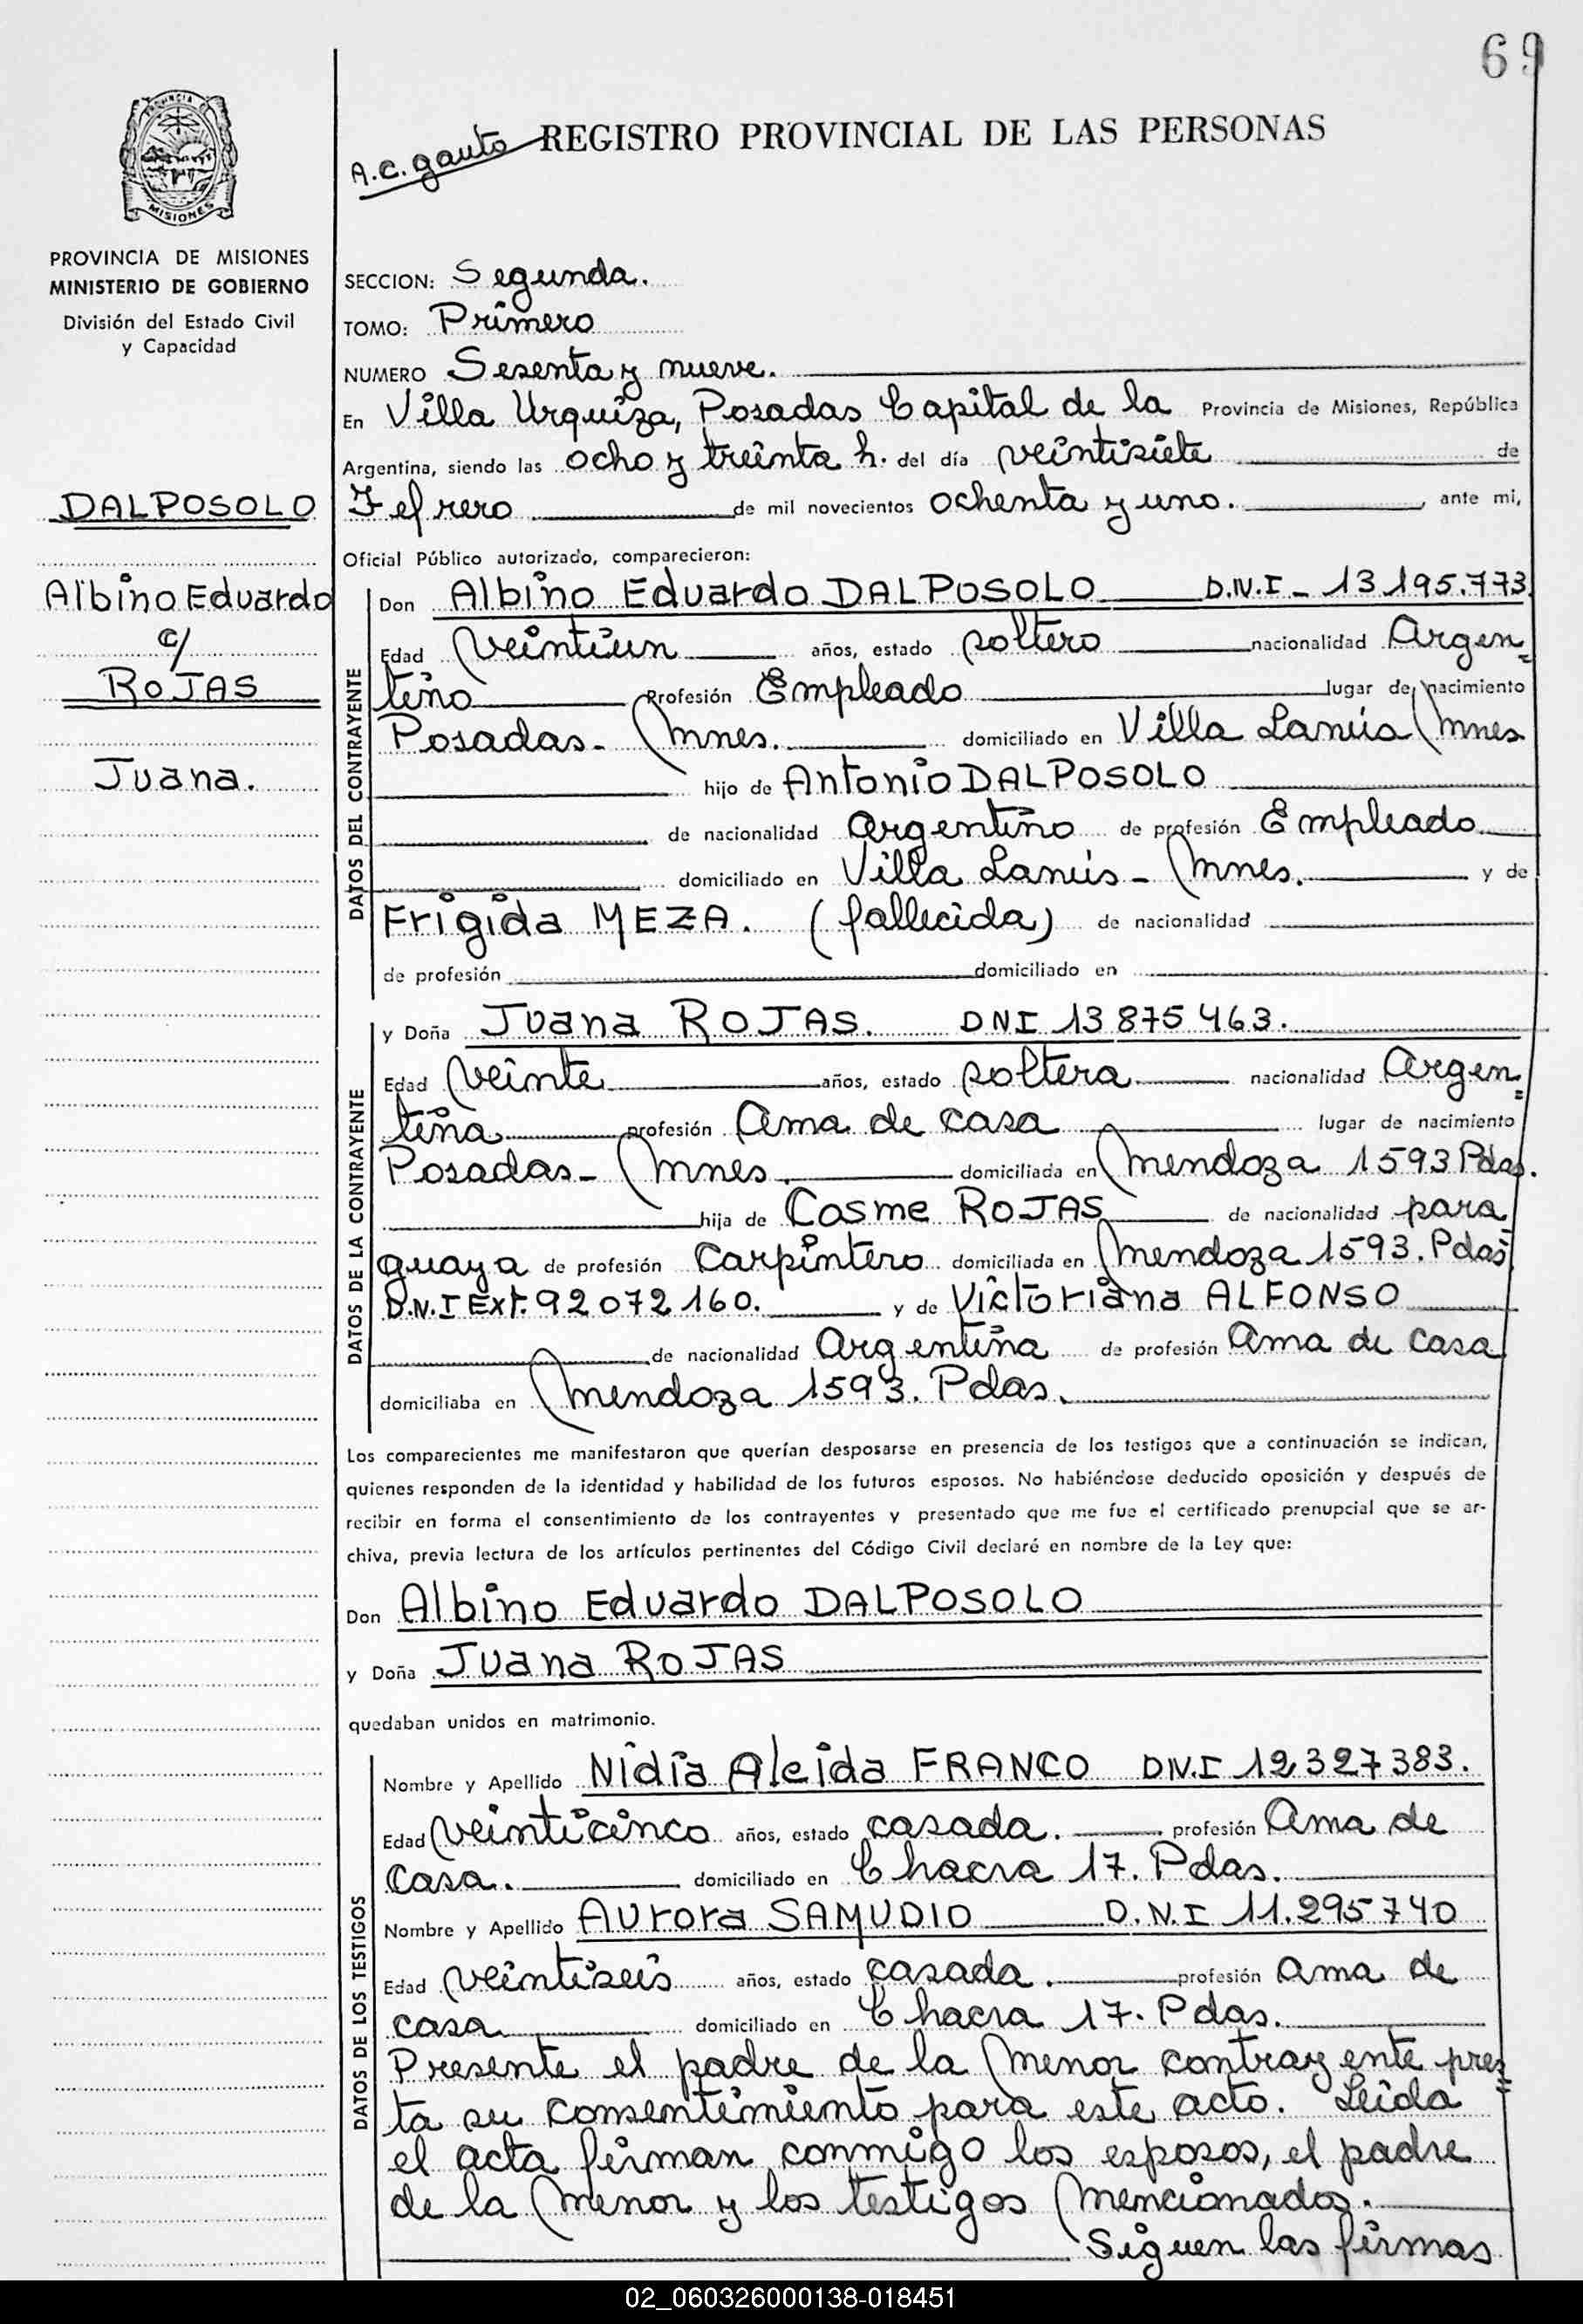 69
A.C. gauto
REGISTRO PROVINCIAL DE LAS PERSONAS
PROVINCIA DE
MISIONES
PROVINCIA DE MISIONES
MINISTERIO DE GOBIERNO
División del Estado Civil
y Capacidad
DALPOSOLO
Albino Eduardo
c/
ROJAS
Juana.
SECCION: Segunda.
TOMO: Primero
NUMERO Sesenta y nueve.
En Villa Urquiza, Posadas Capital de la Provincia de Misiones, República
Argentina, siendo las ocho y treinta h. del día veintisiete de
Febrero de mil novecientos ochenta y uno. , ante mi,
Oficial Público autorizado, comparecieron:
DATOS DEL CONTRAYENTE
Don Albino Eduardo DALPOSOLO D.N.I - 13195.773
Edad Veintiun años, estado soltero nacionalidad Argen=
tino Profesión Empleado lugar de nacimiento
Posadas - Mnes. domiciliado en Villa Lanús Mnes
hijo de Antonio DALPOSOLO
de nacionalidad argentino de profesión Empleado
domiciliado en Villa Lanús - Mnes. y de
Frigida MEZA. (fallecida) de nacionalidad
de profesión domiciliado en
DATOS DE LA CONTRAYENTE
y Doña Juana ROJAS. DNI 13875463.
Edad Veinte años, estado soltera nacionalidad Argen=
tina profesión Ama de casa lugar de nacimiento
Posadas - Mnes. domiciliada en Mendoza 1593 Pdas.
hija de Cosme ROJAS de nacionalidad para
guaya de profesión Carpintero domiciliada en Mendoza 1593. Pdas
D.N.I Ext. 92072160. y de Victoriana ALFONSO
de nacionalidad Argentina de profesión Ama de casa
domiciliaba en Mendoza 1593. Pdas.
Los comparecientes me manifestaron que querían desposarse en presencia de los testigos que a continuación se indican,
quienes responden de la identidad y habilidad de los futuros esposos. No habiéndose deducido oposición y después de
recibir en forma el consentimiento de los contrayentes y presentado que me fue el certificado prenupcial que se ar-
chiva, previa lectura de los artículos pertinentes del Código Civil declaré en nombre de la Ley que:
Don Albino Eduardo DALPOSOLO
y Doña Juana ROJAS
quedaban unidos en matrimonio.
DATOS DE LOS TESTIGOS
Nombre y Apellido Nidia Aleida FRANCO DN.I 12327383.
Edad Veinticinco años, estado casada. profesión Ama de
casa. domiciliado en Chacra 17. Pdas.
Nombre y Apellido Aurora SAMUDIO D.N.I 11.295740
Edad Veintiseis años, estado casada. profesión ama de
casa domiciliado en Chacra 17. Pdas.
Presente el padre de la menor contrayente pres=
ta su consentimiento para este acto. Leída
el acta firman conmigo los esposos, el padre
de la menor y los testigos mencionados.
Siguen las firmas
02_060326000138-018451